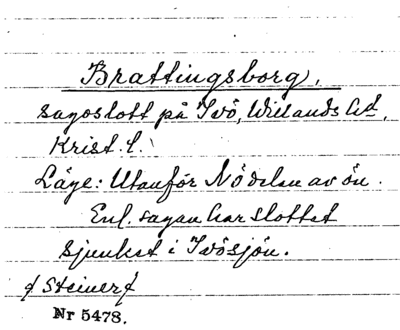 Brattingsborg,
sagoslott på Ivö, Willands hd,
Krist. l.
Läge: Utanför NÖdelen av ön.
Enl. sagan har slottet
sjunket i Ivösjön.
/Steiner/
Nr 5478.